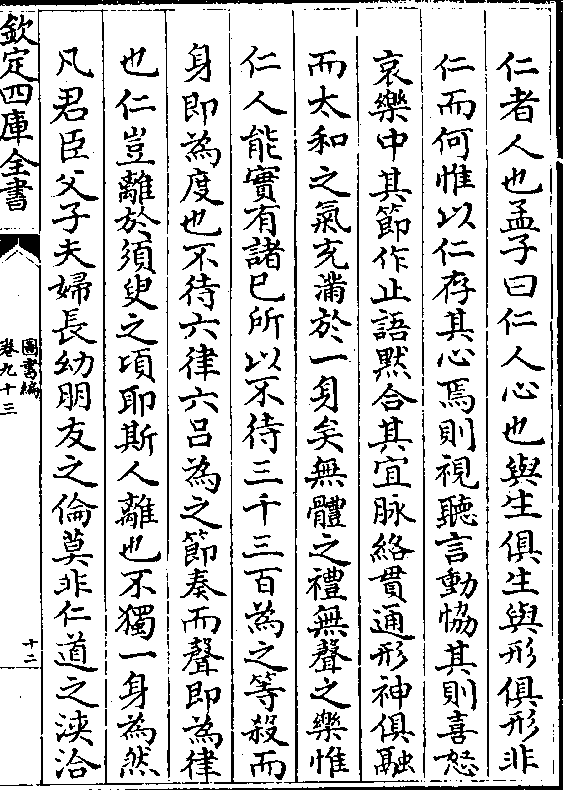 仁者人也孟子曰仁人心也與生俱生與形俱形非
仁而何惟以仁存其心焉則視聽言動恊其則喜怒
哀樂中其節作止語黙合其宜脉絡貫通形神俱融
而太和之氣充滿於一身矣無體之禮無聲之樂惟
仁人能實有諸已所以不待三千三百為之等殺而
身即為度也不待六律六吕為之節奏而聲即為律
也仁豈離於須臾之頃耶斯人離也不獨一身為然
凡君臣父子夫婦長幼朋友之倫莫非仁道之浹洽
欽定四庫全書
圖書編
卷九十三
十二